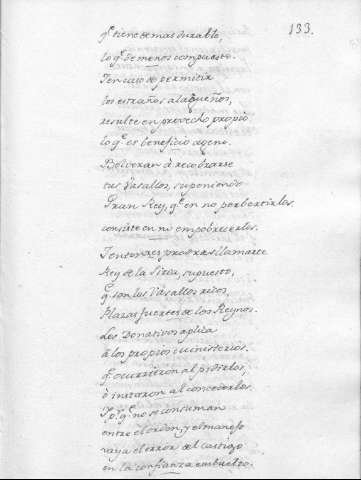 133.
q.e tiene de mas durable,
lo q.e de menos compuesto.
Y en caso de permitir
los estraños a la queños,
resulte en provecho propio
lo q.e es beneficio ageno.
Bolveran à recobrarse
tus Vasallos, suponiendo
Gran Rey, q.e en no perbertirlos
consiste en no empobrecerlos.
Y entonzes podras llamarte
Rey de la Siria, supuesto,
q.e son los Vasallos ricos,
Plazas fuertes de los Reynos.
Los Donativos aplica
à los propios ministerios.
q.e ocurrieron al pedirlos,
ò instaron al concederlos.
Y p.r q.e no se consuman
entre el orden, y el manejo
vaya el error del castigo
en la confianza embuelto.